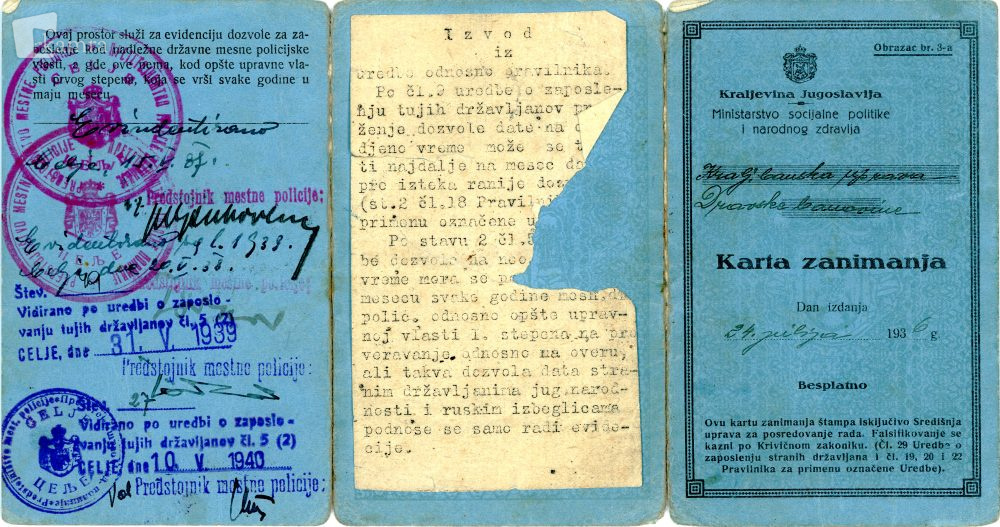 Ovaj prostor služi za evidenciju dozvole za za-
poslenje kod nadležne državne mesne policijske
vlasti, a gde ove nema, kod opšte upravne vla-
sti prvog stepena, koja se vrši svake godine u
maju mesecu.
Evindentirano
Predstojnik mestne policije:
Evidentirano 1938.
Predstojnik mestne policije:
Štev.
Vidirano po uredbi o zaposlo-
vanju tujih državljanov čl. 5 (2)
CELJE, dne 31. V. 1939
Predstojnik mestne policije:
27
Štev.
Vidirano po uredbi o zaposlo-
vanju tujih državljanov čl. 5 (2)
CELJE, dne 10. V. 1940
Predstojnik mestne policije:
CELJE
ЦЕЉЕ
Izvod
iz
uredbe odnosno pravilnika.
Po čl.9 uredbe o zaposle-
nju tujih državljanov pr
ženje dozvole date na o
djeno vreme može se t
ti najdalje na mesec da
pre izteka ranije doz
(st.2 čl.18 Pravilni
primenu označene u
Po stavu 2 čl.5
be dozvola na neo
vreme mora se p
mesecu svake godine
polic. odnosno opšte uprav-
noj vlasti 1. stepena na pro
veravanje odnosno na overu,
ali takva dozvola data stra-
nim državljanima jug.narod-
nosti i ruskim izbeglicama
podnose se samo radi evide
cije.
Obrazac br. 3-a
Kraljevina Jugoslavija
Ministarstvo socijalne politike
i narodnog zdravlja
Kralj. banska uprava
Dravske banovine
Karta zanimanja
Dan izdanja
24. julija 1936 g.
Besplatno
Ovu kartu zanimanja štampa isključivo Središnja
uprava za posredovanje rada. Falsifikovanje se
kazni po Krivičnom zakoniku. (Čl. 29 Uredbe o
zaposlenju stranih državljana i čl. 19, 20 i 22
Pravilnika za primenu označene Uredbe).